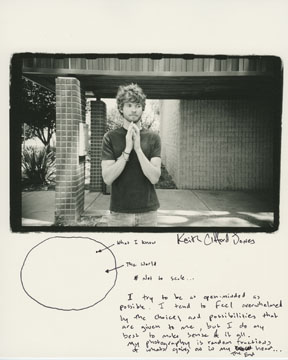 Keith Clifford Jones
What I know
The World
# not to scale...
I try to be as open-minded as
possible. I tend to feel overwhelmed
by the choices and possibilities that
are given to me, but I do my
best to make sense of it all.
my photography is random fractions
of what goes on in my head...